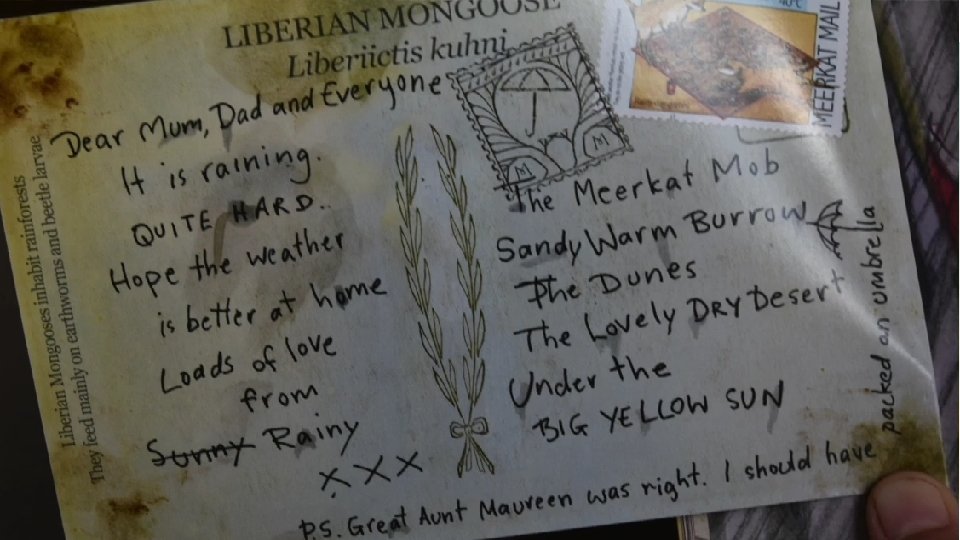 LIBERIAN MONGOOSE
Liberiictis kuhni
Dear Mum, Dad and Everyone
It is raining.
QUITE HARD..
Hope the weather
is better at home
Loads of love
from
Sunny Rainy
xxx
Liberian Mongooses inhabit rainforests
They feed mainly on earthworms and beetle larvae
MEERKAT MAIL
M M
The Meerkat Mob
Sandy Warm Burrow
The Dunes
The Lovely DRY Desert
Under the
BIG YELLOW SUN
P.S. Great Aunt Maureen was right. I should have
packed an umbrella